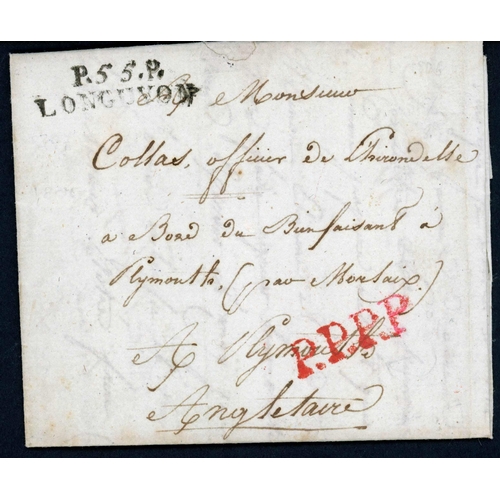 P.55.P.
LONGUYON
A Monsieur
Collas, officier de L'hirondelle
a Bord du Bienfaisant à
Plymouth, (par Morlaix.)
P.P.P.P
A Plymouth
Angletaire